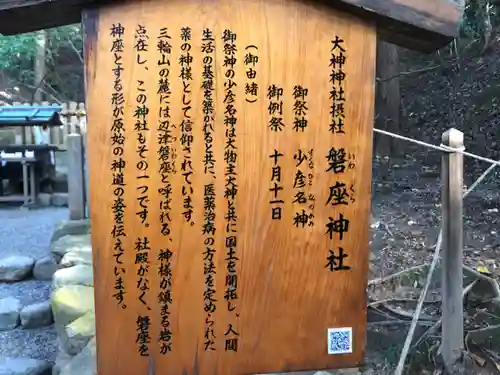 大神神社摂社 磐座神社
いわ くら
御祭神 少彦名神
すくなひこなのかみ
御例祭 十月十一日
（御由緒）
御祭神の少彦名神は大物主大神と共に国土を開拓し、人間
生活の基礎を築かれると共に、医薬治病の方法を定められた
薬の神様として信仰されています。
三輪山の麓には辺津磐座と呼ばれる、神様が鎮まる岩が
へついわくら
点在し、この神社もその一つです。社殿がなく、磐座を
神座とする形が原始の神道の姿を伝えています。